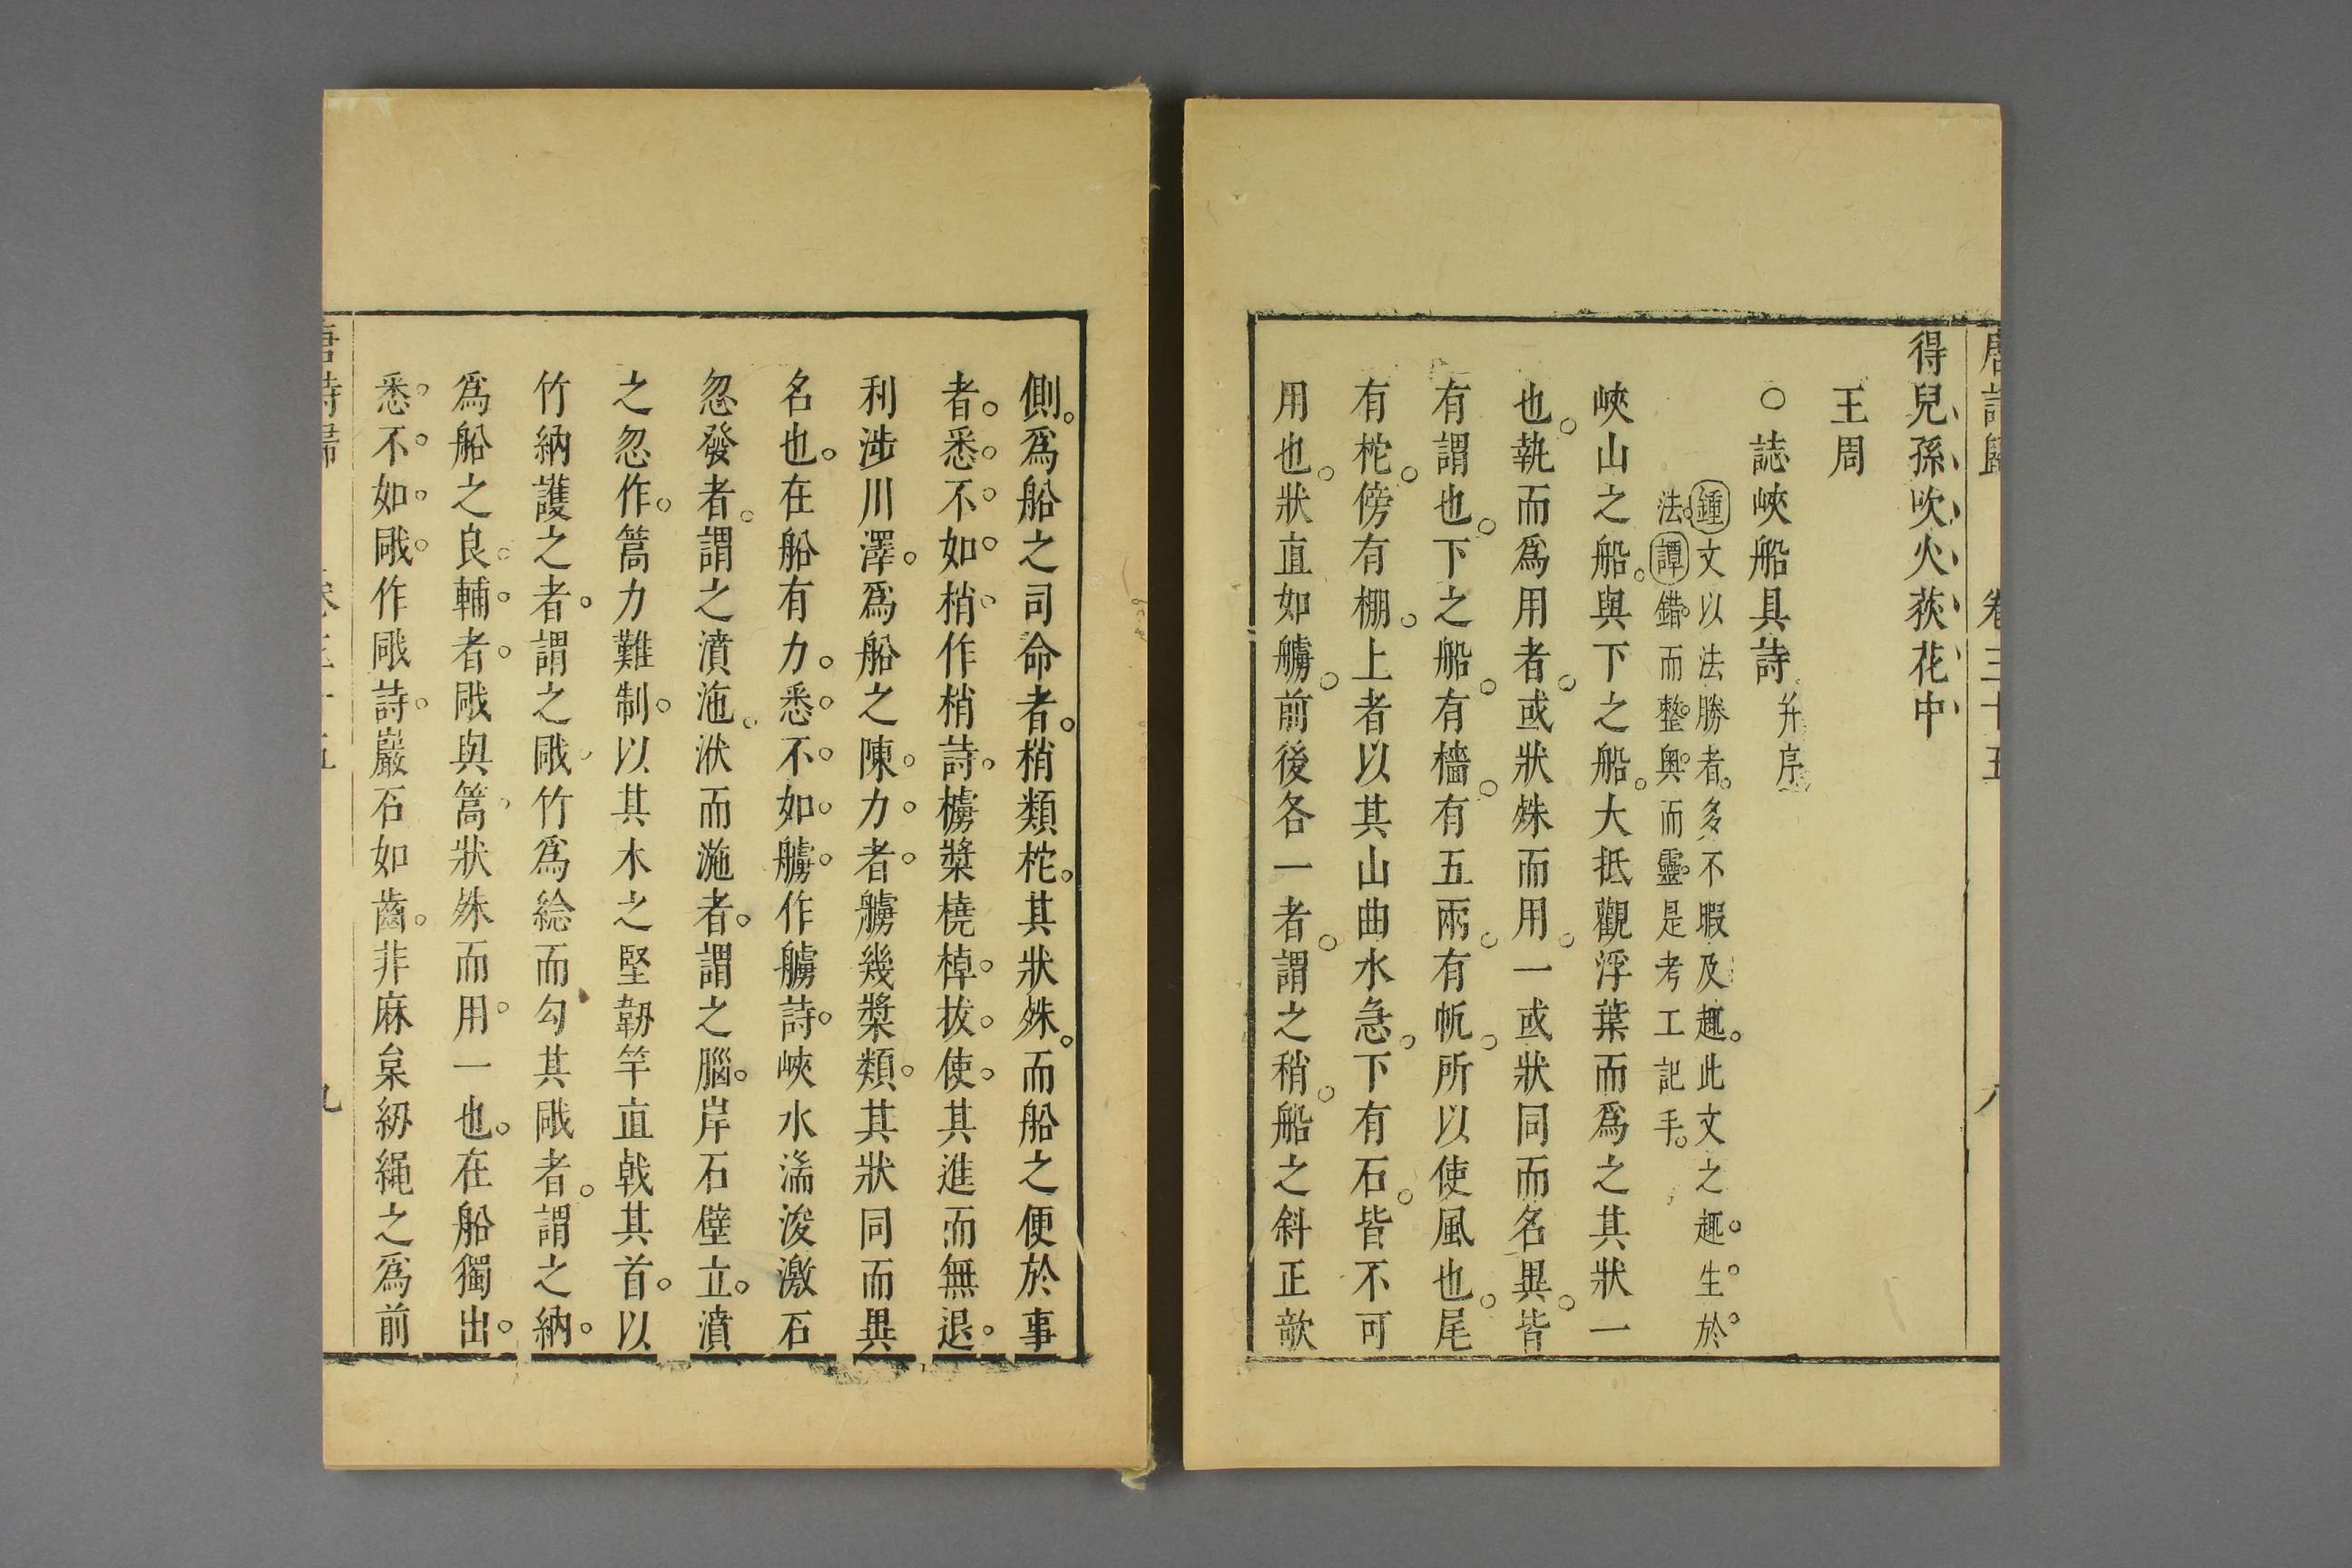 唐詩歸 卷三十五 八
得兒孫吹火荻花中
王周
○誌峽船具詩并序
鍾文以法勝者多不暇及趣此文之趣生於
法譚錯而整奧而靈是考工記手
峽山之船與下之船大抵觀浮葉而爲之其狀一
也執而爲用者或狀殊而用一或狀同而名異皆
有謂也下之船有檣有五兩有帆所以使風也尾
有柁傍有棚上者以其山曲水急下有石皆不可
用也狀直如艣前後各一者謂之稍船之斜正欹
側爲船之司命者梢類柁其狀殊而船之便於事
者悉不如梢作梢詩櫓槳橈棹拔使其進而無退
利涉川澤爲船之陳力者艣幾槳類其狀同而異
名也在船有力悉不如艣作艣詩峽水湍浚激石
忽發者謂之濆沲洑而漩者謂之腦岸石壁立濆
之忽作篙力難制以其木之堅韌竿直戟其首以
竹納護之者謂之戙竹爲䋎而勾其戙者謂之納
爲船之良輔者戙與篙狀殊而用一也在船獨出
悉不如戙作戙詩巖石如齒非麻枲紉繩之爲前
唐詩歸 卷三十五 九